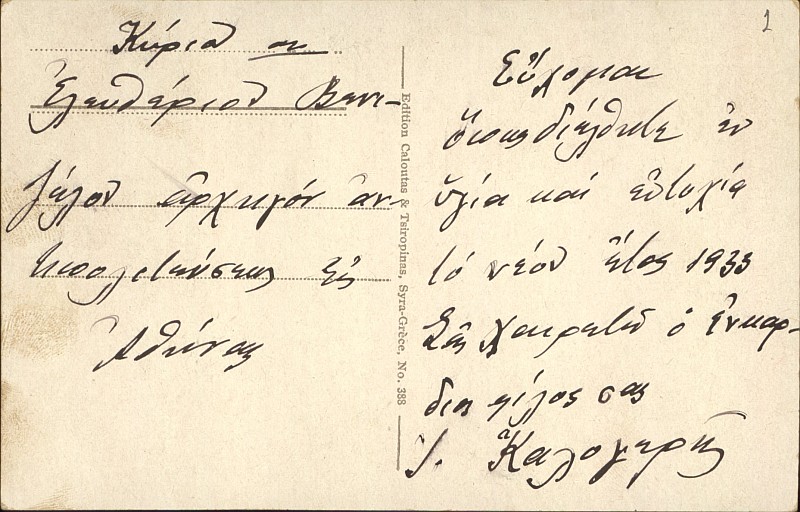 1
Κύριον
Ἐλευθέριον Βενι-
ζέλον ἀρχηγόν ἀν-
τιπολιτεύσεως εἰς
Ἀθήνας
Edition Caloutas & Tsiropinas, Syra-Grèce, No. 388
Εὔχομαι
ὅπως διέλθητε ἐν
ὑγία καί εὐτυχία
τό νέον ἔτος 1933
Σᾶς χαιρετῶ ὁ ἐνκαρ-
διος φίλος σας
Καλογερῆς